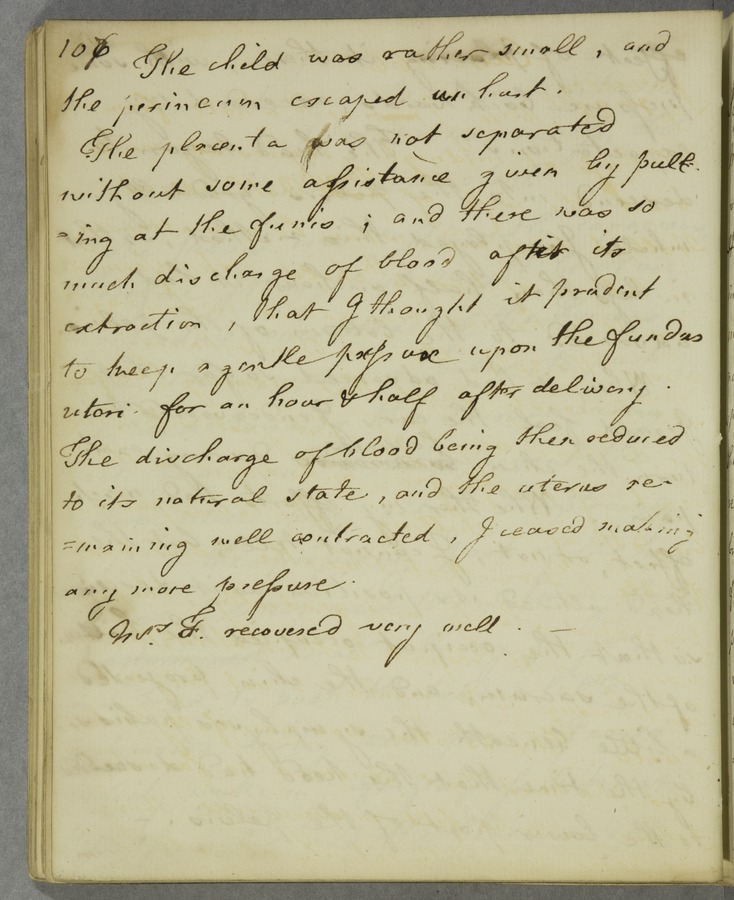 106 The child was rather small, and
the perineum escaped unhurt.
The placenta was not separated
without some assistance given by pull-
=ing at the funis; and there was so
much discharge of blood after its
extraction, that I thought it prudent
to keep a gentle pressure upon the fundus
uteri for an hour & half after delivery.
The discharge of blood being then reduced
to its natural state, and the uterus re-
=maining well contracted, I ceased making
any more pressure.
Mrs. F. recovered very well. —